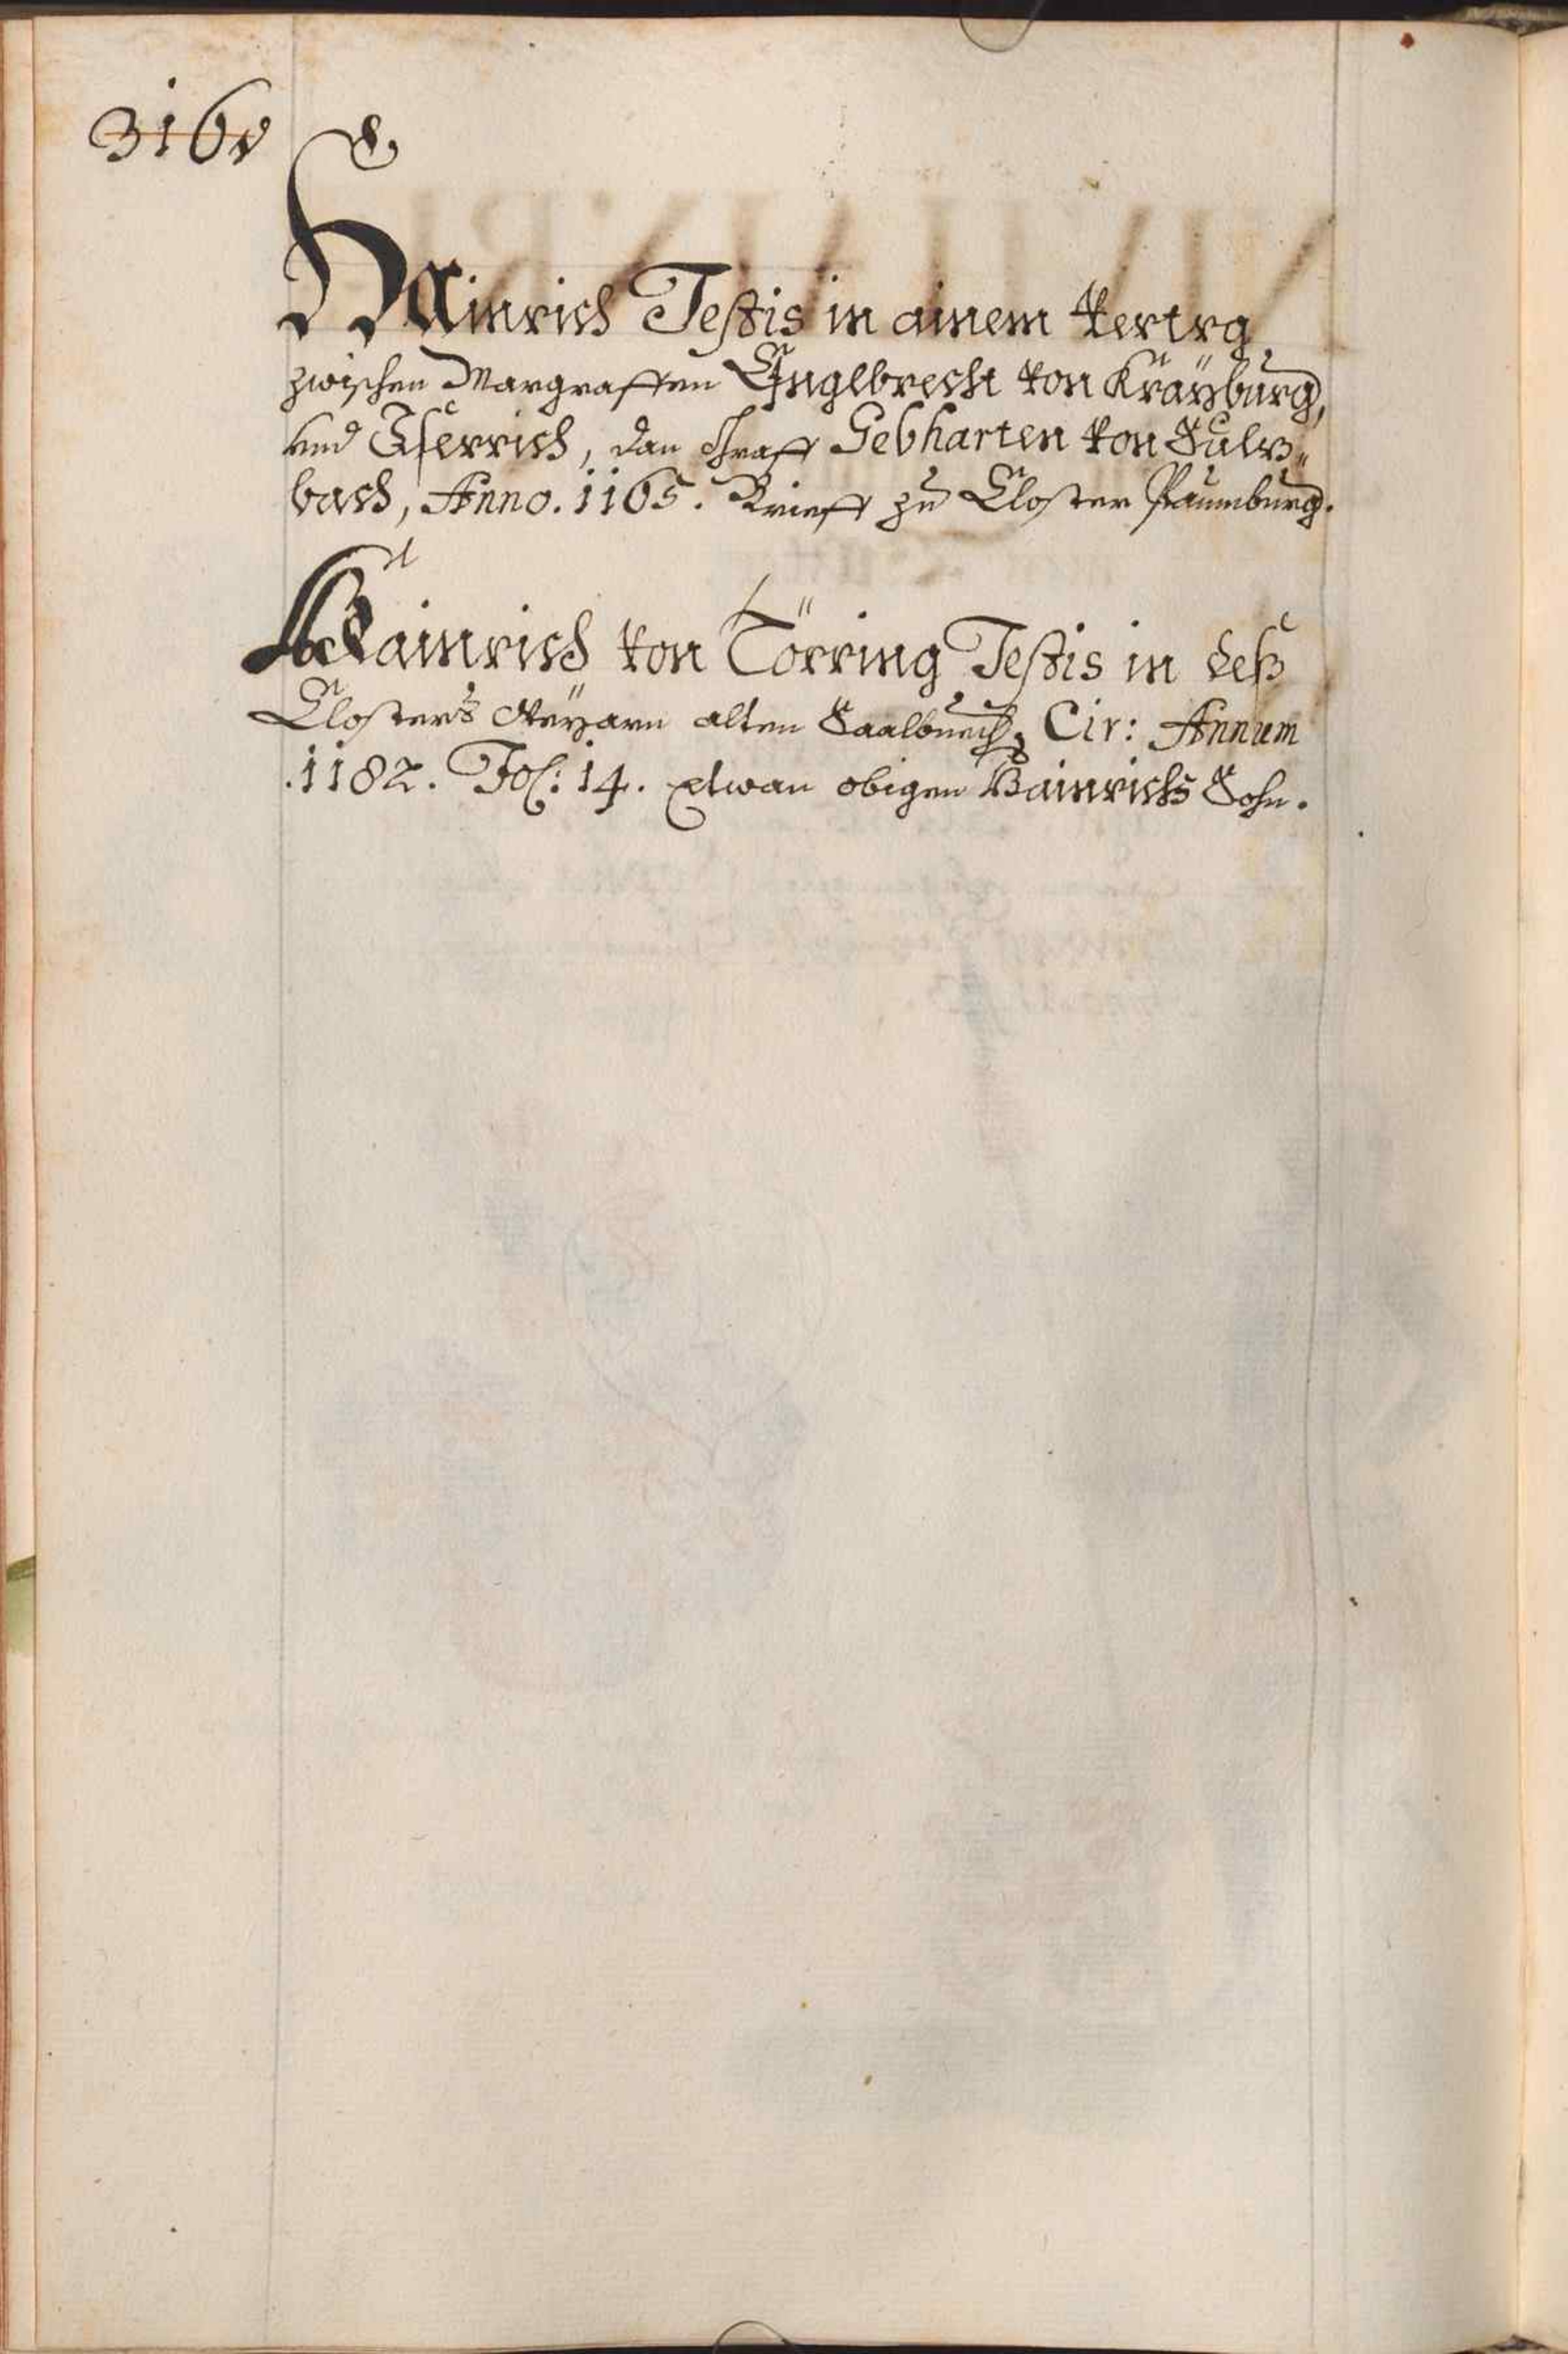 316v
Hainrich Testis in ainem vertrg
zwischen Margraffen Englbrecht von Kräyburg,
und Isterrich, dan Graff Gebharten von Sulz„
bach, Anno. 1165. Brieff zu Closter Paumburg.
Hainrich von Törring Testis in deß
Closters Weyarn alten Saalbuech, Cir: Annum
.1182. Fol: 14. etwan obigen Hainrichs Sohn.